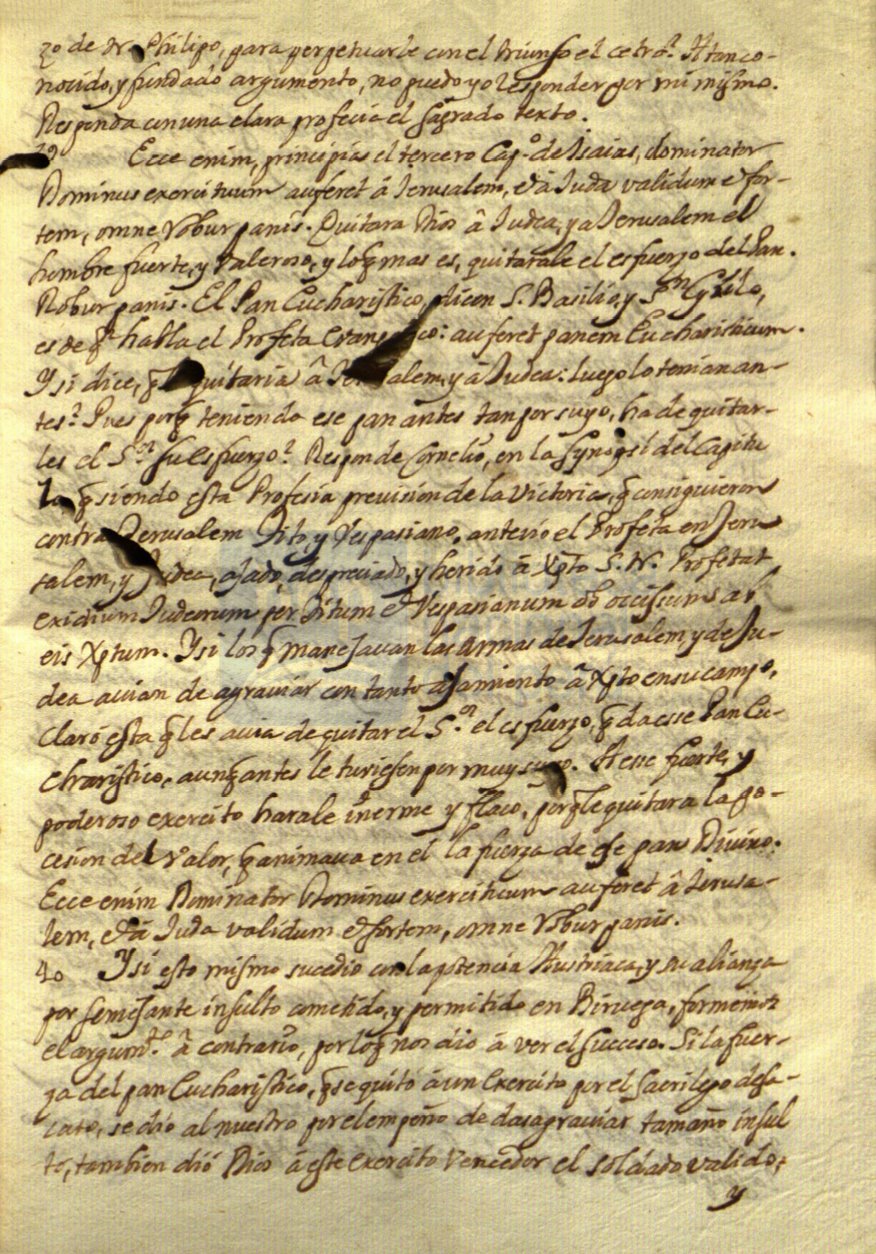 zo de N. Philipo, para perpetuarle con el triunfo el cetro? A tan co-
nocido, y fundado argumento, no puedo yo responder por mi mismo.
Responda con una clara profecia el sagrado texto.
39 Ecce enim, principia el tercero Cap.º de Isaias, dominator
Dominus exercituum auferet â Jerusalem, & â Juda validum & for-
tem, omne robur panis. Quitara Dios â Judea, y a Jerusalem el
hombre fuerte, y valeroso, y lo q mas es, quitarale el esfuerzo del Pan.
Robur panis. El Pan Eucharistico, dicen S. Basilio, y Sn Cyrilo,
es de qn habla el Profeta: auferet panem Eucharisticum.
Y si dice, q lo quitaria â Jerusalem, y â Judea: luego lo tenian an-
tes? Pues porq teniendo ese pan antes tan por suyo, ha de quitar-
les el Sr. su esfuerzo? Responde Cornelio, en la Synopsi del Capitu
lo, q siendo esta Profesia prevision de la victoria, q consiguieron
contra Jerusalem Tito, y Vespasiano, antevio el Profeta en Jeru
salem, y Judea, ajado, despreciado, y herido â Xpto S. N. Profetat
exidium Judeorum per Titum & Vespasianum ob occissum ab
eis Xptum. Y si los q manejavan las armas de Jerusalem, y de Ju-
dea avian de agraviar con tanto ajamiento â Xpto en su campo,
claro esta q les avia de quitar el Sor. el esfuerzo, q da esse Pan Eu-
charistico, aunq antes le tuviesen por muy suyo. A esse fuerte, y
poderoso exercito harale inerme y flaco, porq le quitara la po-
cesion del valor, q animava en el la fuerza de ese pan Divino.
Ecce enim Dominator Dominus exercituum auferet â Jerusa-
lem, & â Juda validum & fortem, omne robur panis.
40 Y si esto mismo sucedio con la potencia Austriaca, y su alianza
por semejante insulto cometido, y permitido en Biruega, formemos
el argumto. â contrario, por lo q nos dio â ver el successo. Si la fuer-
za del pan Eucharistico, q se quitó â un Exercito por el sacrilego desa-
cato, se dio al nuestro por el empeño de dasagraviar tamaño insul
to, tambien dió Dios â este exercito vencedor el soldado valido,
y